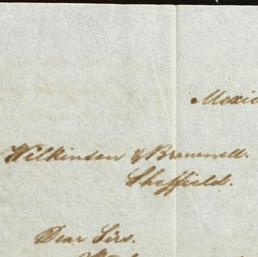 Mexic
Wilkinson & Brownell.
Sheffield.
Dear Sirs.